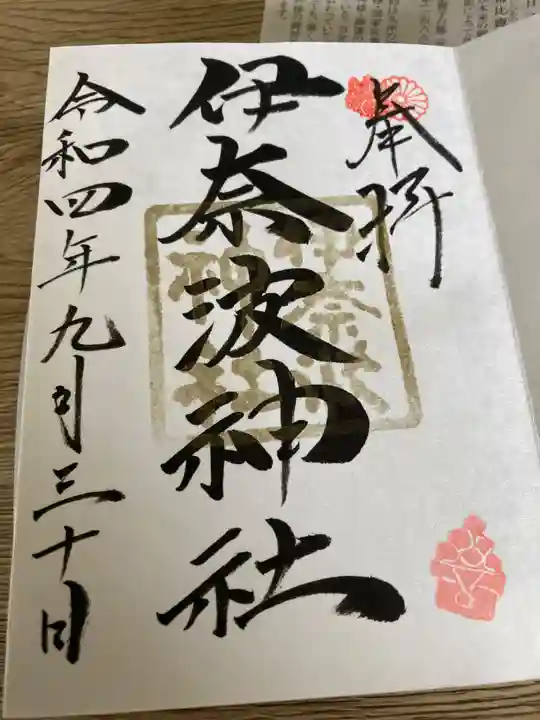 奉拝
伊奈波神社
令和四年九月三十日
伊奈波
神社